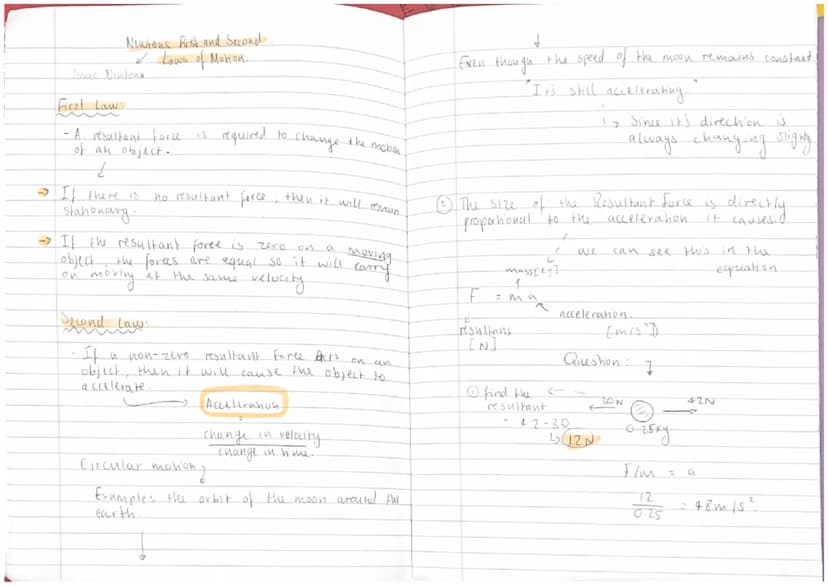 Newtons First and Second
Laws of Motion.
Isaac Newtons
First Law
- A resultant force is required to change the motion
of an object.
If there is no resultant force, then it will remain
stationary.
If the resultant force is zero on a moving
object, the forces are equal so it will carry
on moving at the same velocity
Second Law
- If a non-zero resultant force Acts on an
object, then it will cause the object to
accelerate.
Acceleration
=
change in velocity
change in time.
Circular motion
Example: the orbit of the moon around the
earth.
Even though the speed of the moon remains constant
"It's still accelerating."
Since it's direction is
always changing slighty
② The size of the Resultant force is directly
proportional to the acceleration it causes
we can see this in the
equation
mass[Kg]
F = m a
acceleration.
resultant [m/s²]
[N]
Question:
① find the
resultant
30N 42N
0.25kg
42-30
12N
F/m = a
12
0.25
= 48m/s²